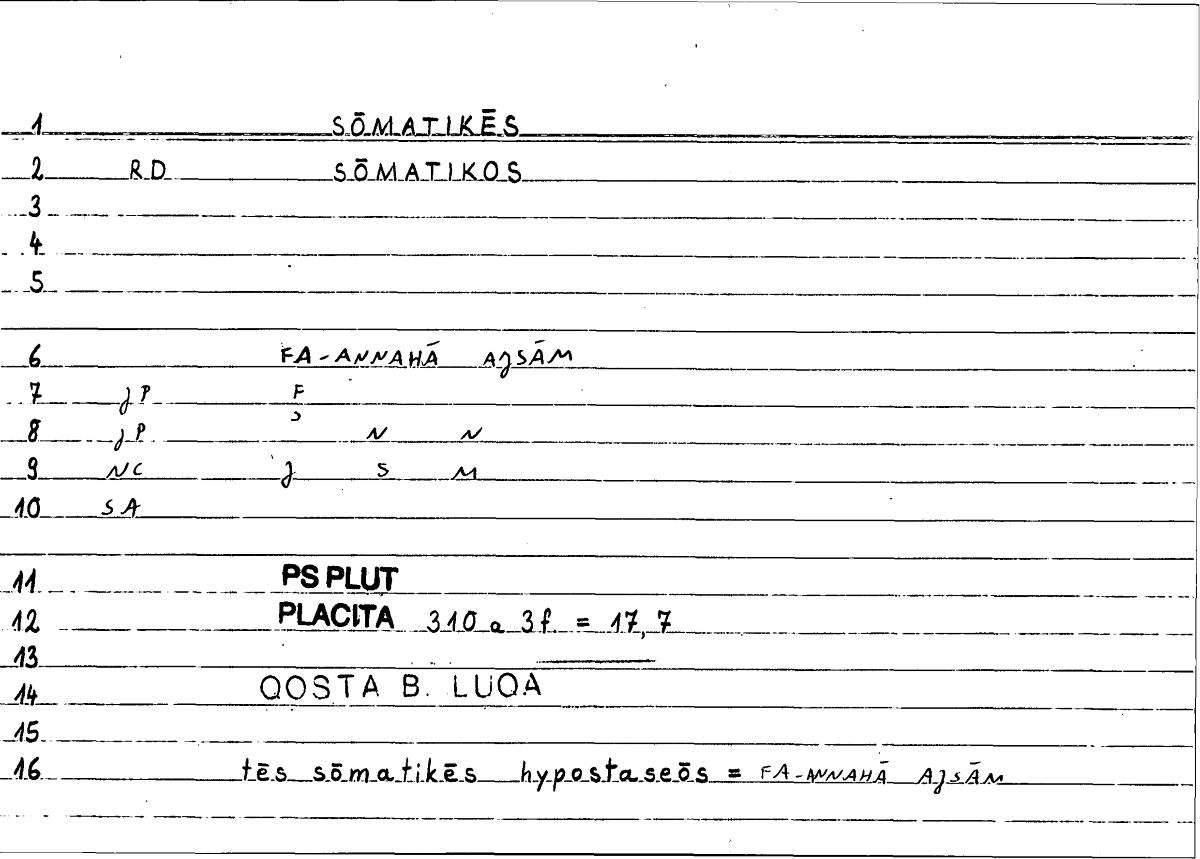 1 SŌMATIKĒS
2 RD SŌMATIKOS
3
4
5
6 FA-ANNAHĀ AJSĀM
7 JP F
8 JP ʾ N N
9 NC J S M
10 SA
11 PS PLUT
12 PLACITA 310 a 3f. = 17,7
13
14 QOSTA B. LUQA
15
16 tēs sōmatikēs hypostaseōs = FA-ANNAHĀ AJSĀM